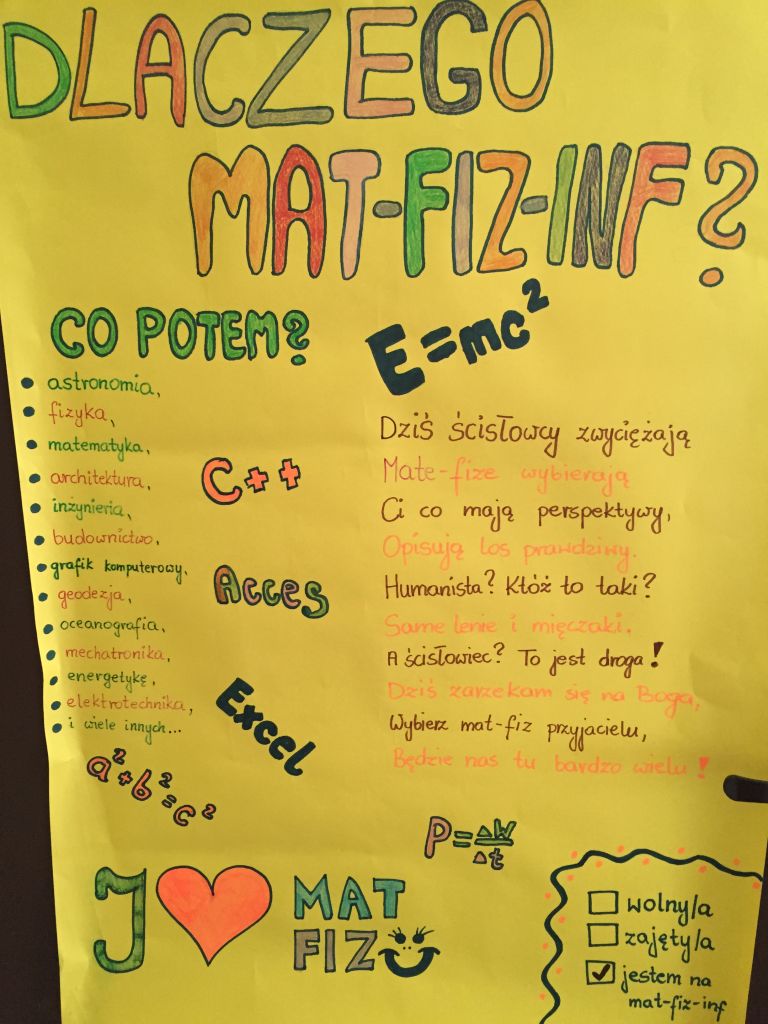 DLACZEGO
MAT-FIZ-INF?
CO POTEM?
• astronomia,
• fizyka,
• matematyka,
• architektura,
• inżynieria,
• budownictwo,
• grafik komputerowy,
• geodezja,
• oceanografia,
• mechatronika,
• energetykę,
• elektrotechnika,
• i wiele innych...
E=mc²
C++
Acces
Excel
Dziś ścisłowcy zwyciężają
Mate-fize wybierają
Ci co mają perspektywy,
Opisują los prawdziwy.
Humanista? Któż to taki?
Same lenie i mięczaki.
A ścisłowiec? To jest droga!
Dziś zarzekam się na Boga,
Wybierz mat-fiz przyjacielu,
Będzie nas tu bardzo wielu!
a²+b²=c²
P=ΔW/Δt
I ❤ MAT
FIZ
☐ wolny/a
☐ zajęty/a
☑ jestem na
mat-fiz-inf